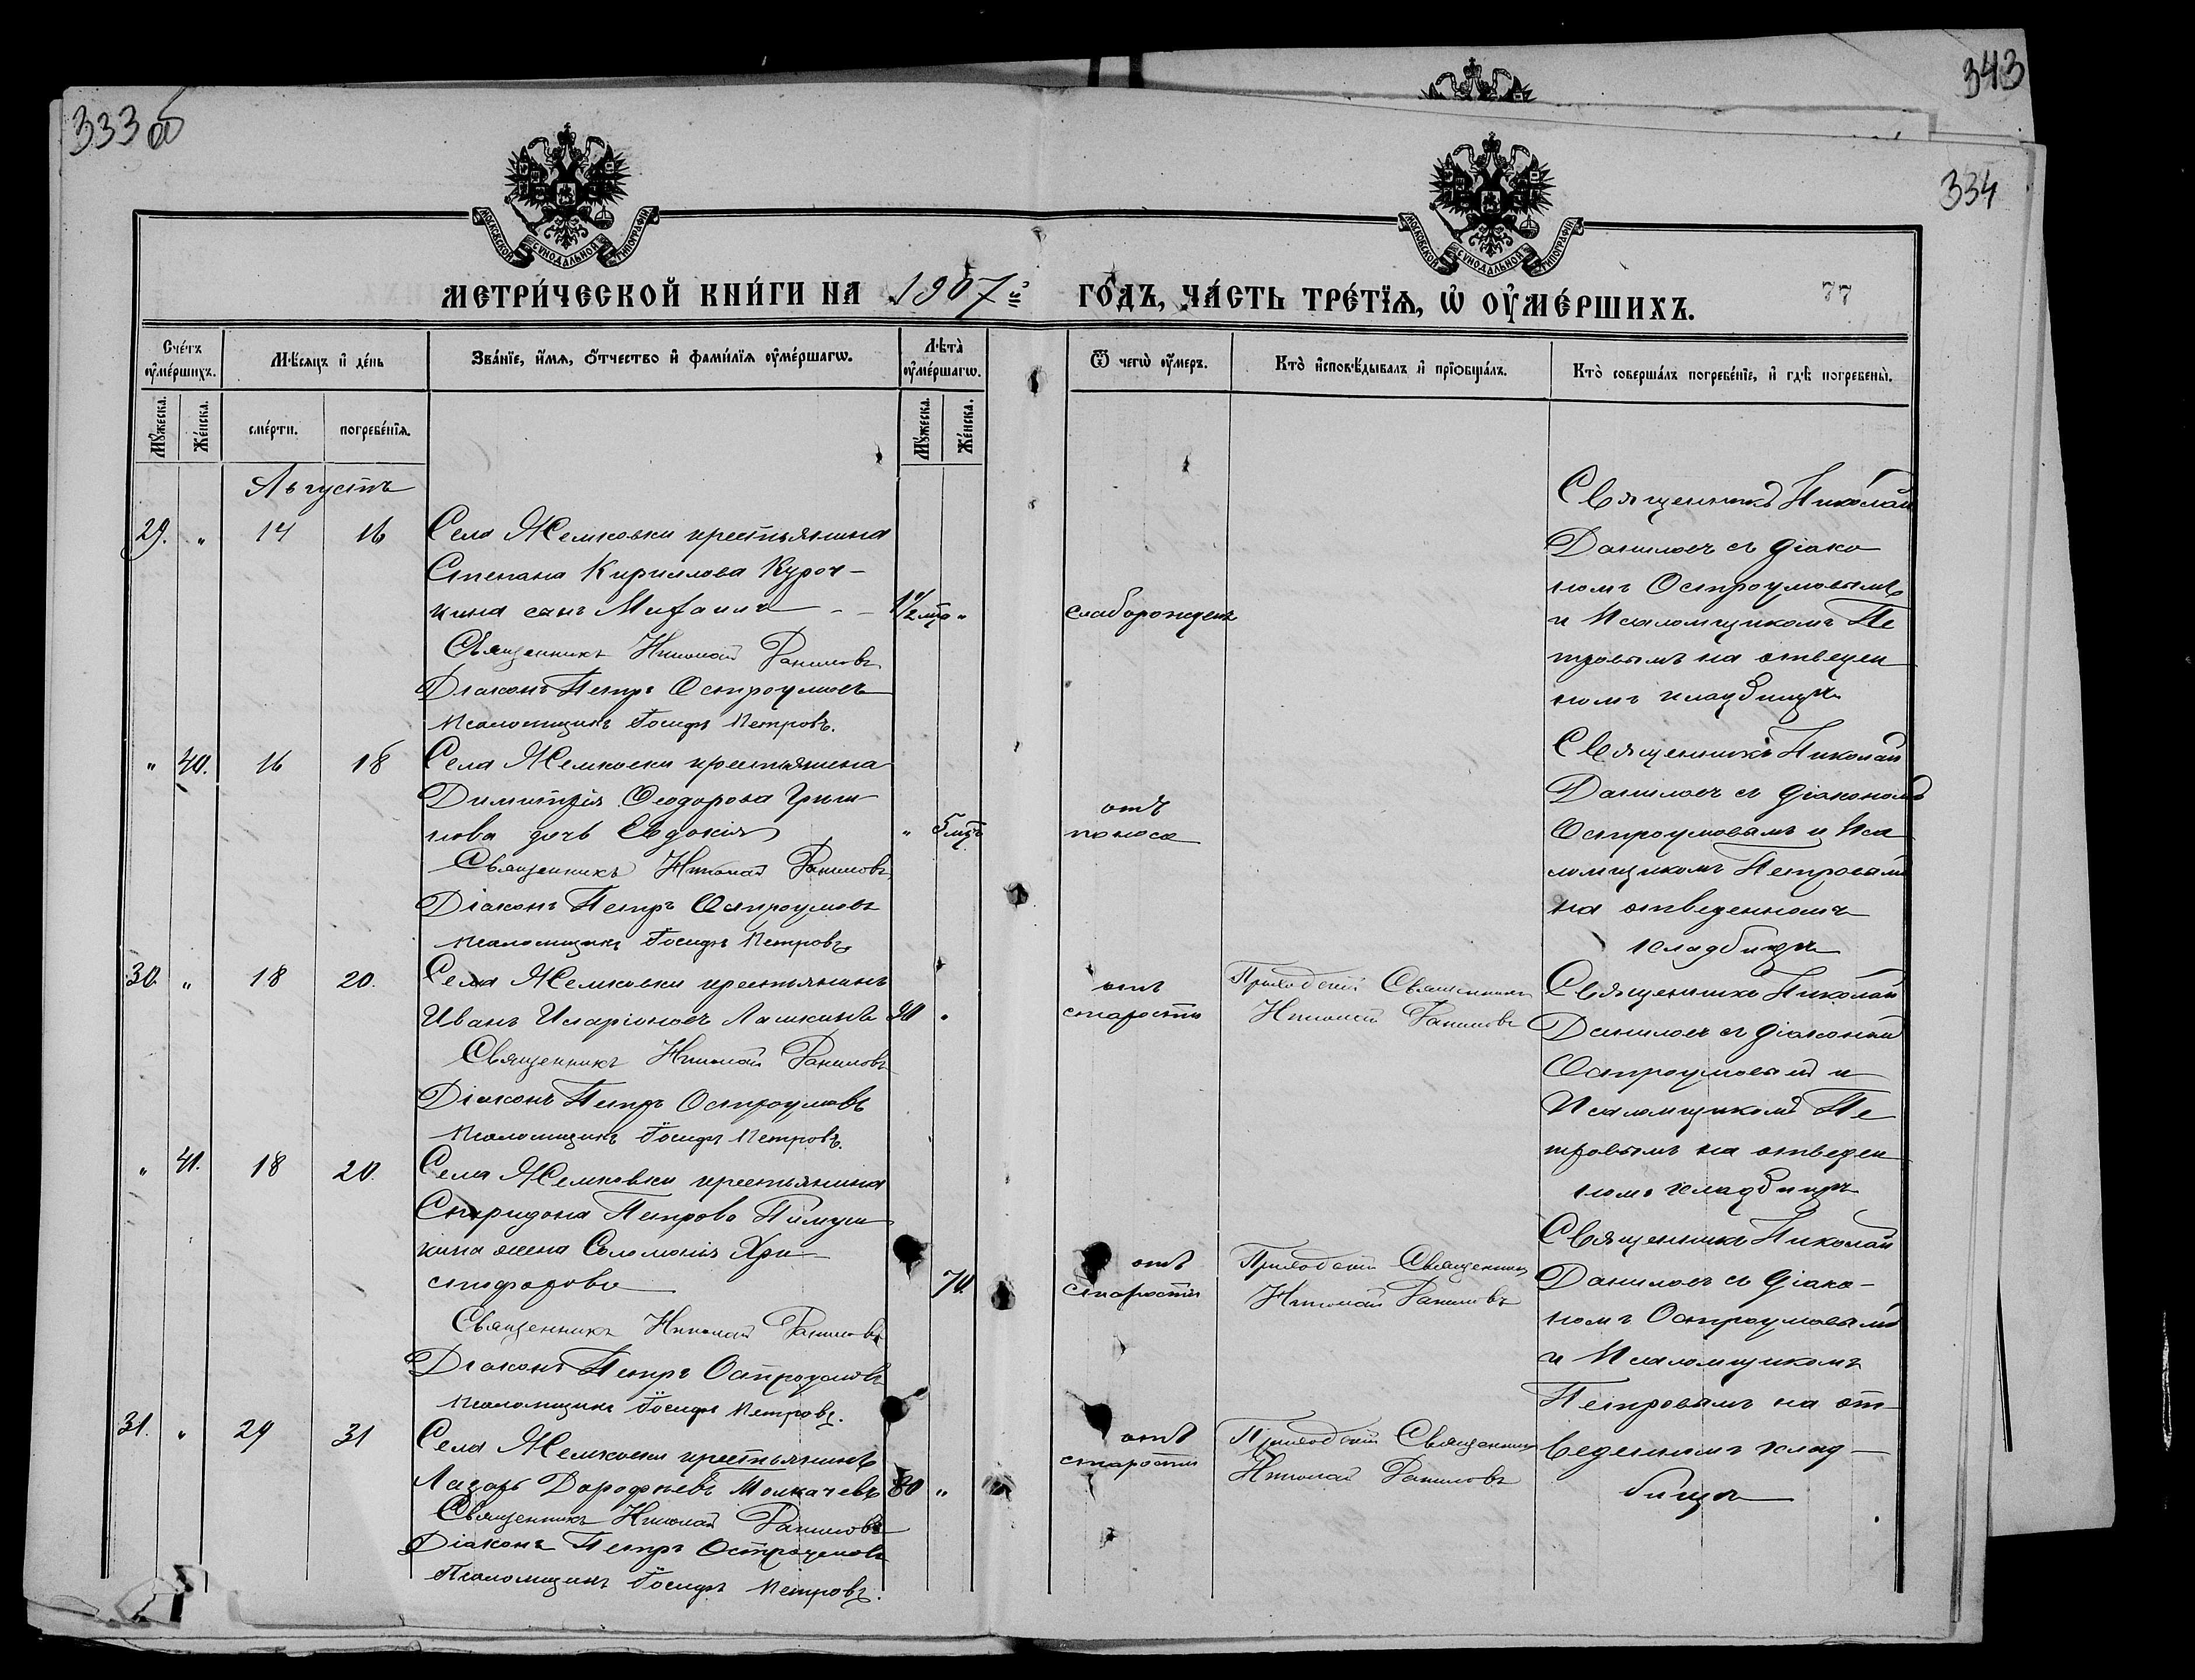 333 об
343
334
МОСКОВСКОЙ СѴНОДАЛЬНОЙ ТИПОГРАФІИ
МОСКОВСКОЙ СѴНОДАЛЬНОЙ ТИПОГРАФІИ
МЕТРИ́ЧЕСКОЙ КНИ́ГИ НА 1907й ГО́ДЪ, ЧА́СТЬ ТРЕ́ТЇѦ, Ѡ҆ ОУ҆МЕ́РШИХЪ.
77
Сче́тъ оу҆ме́ршихъ.
Мѣ́сяцъ и҆ де́нь
Зва́нїе, и҆́мѧ, ѻ҆́тчество и҆ фами́лїѧ оу҆ме́ршагѡ.
Лѣта̀ оу҆ме́ршагѡ.
Ѿ чегѡ̀ оу҆́меръ.
Кто̀ и҆сповѣ́дывалъ и҆ прїѡбща́лъ.
Кто̀ соверша́лъ погребе́нїе, и҆ гдѣ̀ погребены̀.
Му́жеска.
Же́нска.
сме́рти.
погребе́нїѧ.
Му́жеска.
Же́нска.
Августъ
29. " 14 16
Села Жемковки крестьянина
Степана Кириллова Куроч-
кина сынъ Михаилъ - - 1½ мца "
Священникъ Николай Даниловъ
Діаконъ Петръ Остроумовъ
Псаломщикъ Іосифъ Петровъ.
слаборожденъ
Священникъ Николай
Даниловъ съ діако
номъ Остроумовымъ
и Псаломщикомъ Пе
тровымъ на отведен
номъ кладбищѣ
" 40. 16 18
Села Жемковки крестьянина
Димитрія Ѳеодорова Гриш
нова дочь Евдокія " 5 мцъ
Священникъ Николай Даниловъ
Діаконъ Петръ Остроумовъ
Псаломщикъ Іосифъ Петровъ
отъ
поноса
Священникъ Николай
Даниловъ съ діакономъ
Остроумовымъ и Пса
ломщикомъ Петровымъ
на отведенномъ
кладбищѣ
30. " 18 20.
Села Жемковки крестьянинъ
Иванъ Иларіоновъ Лашкинъ 90 "
Священникъ Николай Даниловъ
Діаконъ Петръ Остроумовъ
Псаломщикъ Іосифъ Петровъ.
отъ
старости
Приходскій Священникъ
Николай Даниловъ
Священникъ Николай
Даниловъ съ діакономъ
Остроумовымъ и
Псаломщикомъ Пе
тровымъ на отведен
номъ кладбищѣ
" 41. 18 20.
Села Жемковки крестьянина
Спиридона Петрова Пимуш
кина жена Соломонія Хри-
стофорова 70.
Священникъ Николай Даниловъ
Діаконъ Петръ Остроумовъ
Псаломщикъ Іосифъ Петровъ.
отъ
Старости
Приходскій Священникъ
Николай Даниловъ
Священникъ Николай
Даниловъ съ діако-
номъ Остроумовымъ
и Псаломщикомъ
Петровымъ на от-
веденномъ клад-
бищѣ
31. " 29 31
Села Жемковки крестьянинъ
Лазарь Дорофѣевъ Толкачевъ 80 "
Священникъ Николай Даниловъ
Діаконъ Петръ Остроумовъ
Псаломщикъ Іосифъ Петровъ.
отъ
старости
Приходскій Священникъ
Николай Даниловъ